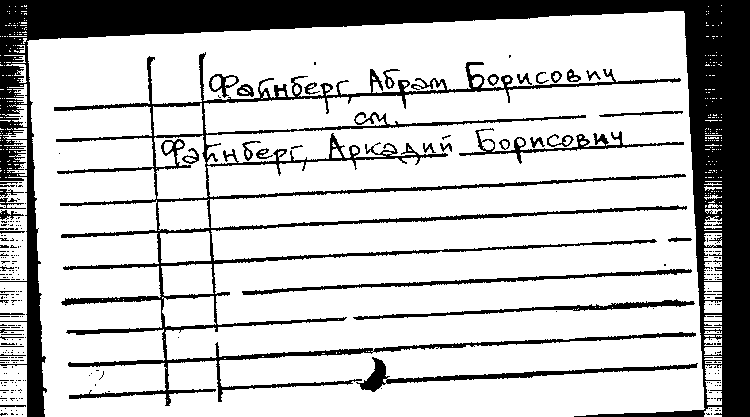 Файнберг, Абрам Борисович
см.
Файнберг, Аркадий Борисович